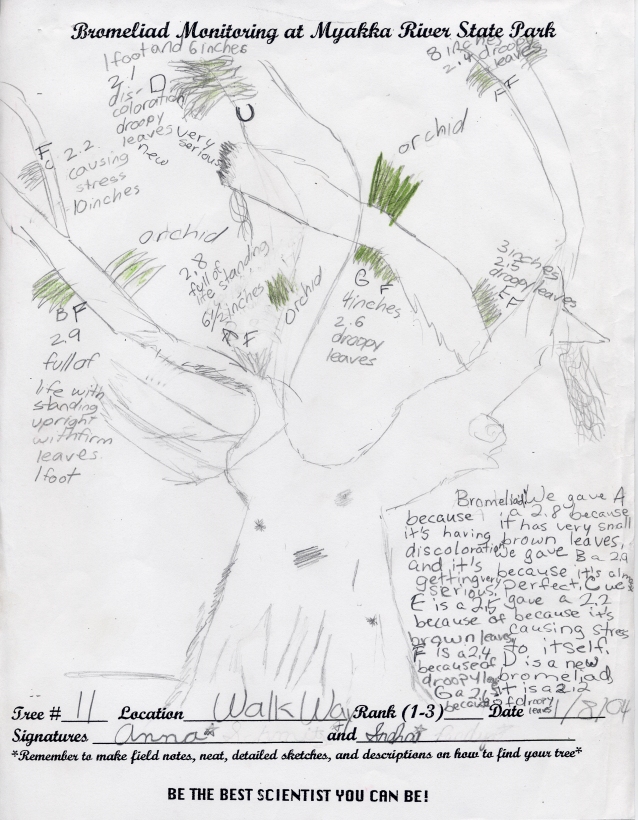 Bromeliad Monitoring at Myakka River State Park
1 foot and 6 inches
2.1 D
dis-
coloration
droopy
leaves very
new serious
U
8 inches
2.4 droopy
leaves
F F
orchid
F
2.2
causing
stress
10 inches
orchid
2.8
full of
life standing
6 1/2 inches
F
orchid
G F
4 inches
2.6
droopy
leaves
3 inches
2.5
droopy leaves
E F
B F
2.9
full of
life with
standing
upright
with firm
leaves
1 foot
Bromeliad We gave A
because a 2.8 because
it's having it has very small
discoloration brown leaves,
and it's We gave B a 2.9
getting very because it's al
serious. perfect. C we
E is a 2.5 gave a 2.2
because of because it's
brown leaves causing stress
F is a 2.4 to itself.
because of D is a new
droopy bromeliad
G a 2.6 it is a 2.2
because of droopy
leaves
Tree # 11 Location Walk Way Rank (1-3) Date 1/8/04
Signatures Anna* and
*Remember to make field notes, neat, detailed sketches, and descriptions on how to find your tree*
BE THE BEST SCIENTIST YOU CAN BE!